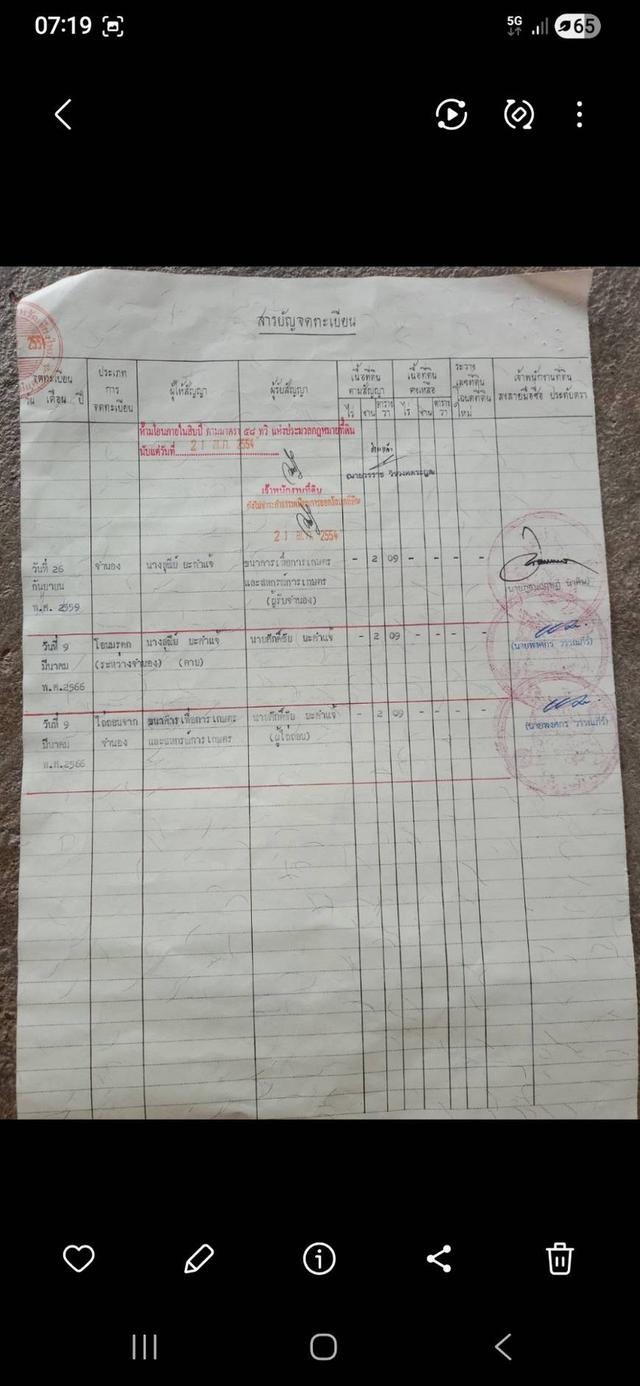 07:19
5G
65
2554
สารบัญจดทะเบียน
จดทะเบียน
วัน เดือน ปี
ประเภท
การ
จดทะเบียน
ผู้ให้สัญญา
ผู้รับสัญญา
เนื้อที่ดิน
ตามสัญญา
ไร่ งาน ตาราง
วา
เนื้อที่ดิน
คงเหลือ
ไร่ งาน ตาราง
วา
ระวาง
เลขที่ดิน
โฉนดที่ดิน
ใหม่
เจ้าพนักงานที่ดิน
ลงลายมือชื่อ ประทับตรา
ห้ามโอนภายในสิบปี ตามมาตรา ๕๘ ทวิ แห่งประมวลกฎหมายที่ดิน
นับแต่วันที่ 21 2554
เจ้าพนักงานที่ดิน
21 2554
วันที่ 26
กันยายน
พ.ศ. 2559
จำนอง
ยะกำแจ้
ธนาคารเพื่อการเกษตร
และสหกรณ์การเกษตร
(ผู้รับจำนอง)
- 2 09 - - - - -
วันที่ 9
มีนาคม
พ.ศ.2566
โอนมรดก
(ระหว่างจำนอง)
ยะกำแจ้
(ตาย)
นายศักดิ์ชัย ยะกำแจ้
- 2 09 - - - - -
(นายพงศกร วรรณภีร์)
วันที่ 9
มีนาคม
พ.ศ.2566
ไถ่ถอนจาก
จำนอง
ธนาคารเพื่อการเกษตร
และสหกรณ์การเกษตร
นายศักดิ์ชัย ยะกำแจ้
(ผู้ไถ่ถอน)
- 2 09 - - - - -
(นายพงศกร วรรณภีร์)